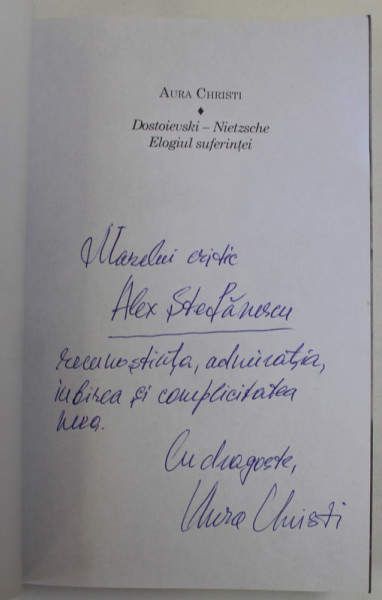 AURA CHRISTI
♦
Dostoievski – Nietzsche
Elogiul suferinței
Marelui critic
Alex Ștefănescu
recunoștința, admirația,
iubirea și complicitatea
mea.
Cu dragoste,
Aura Christi